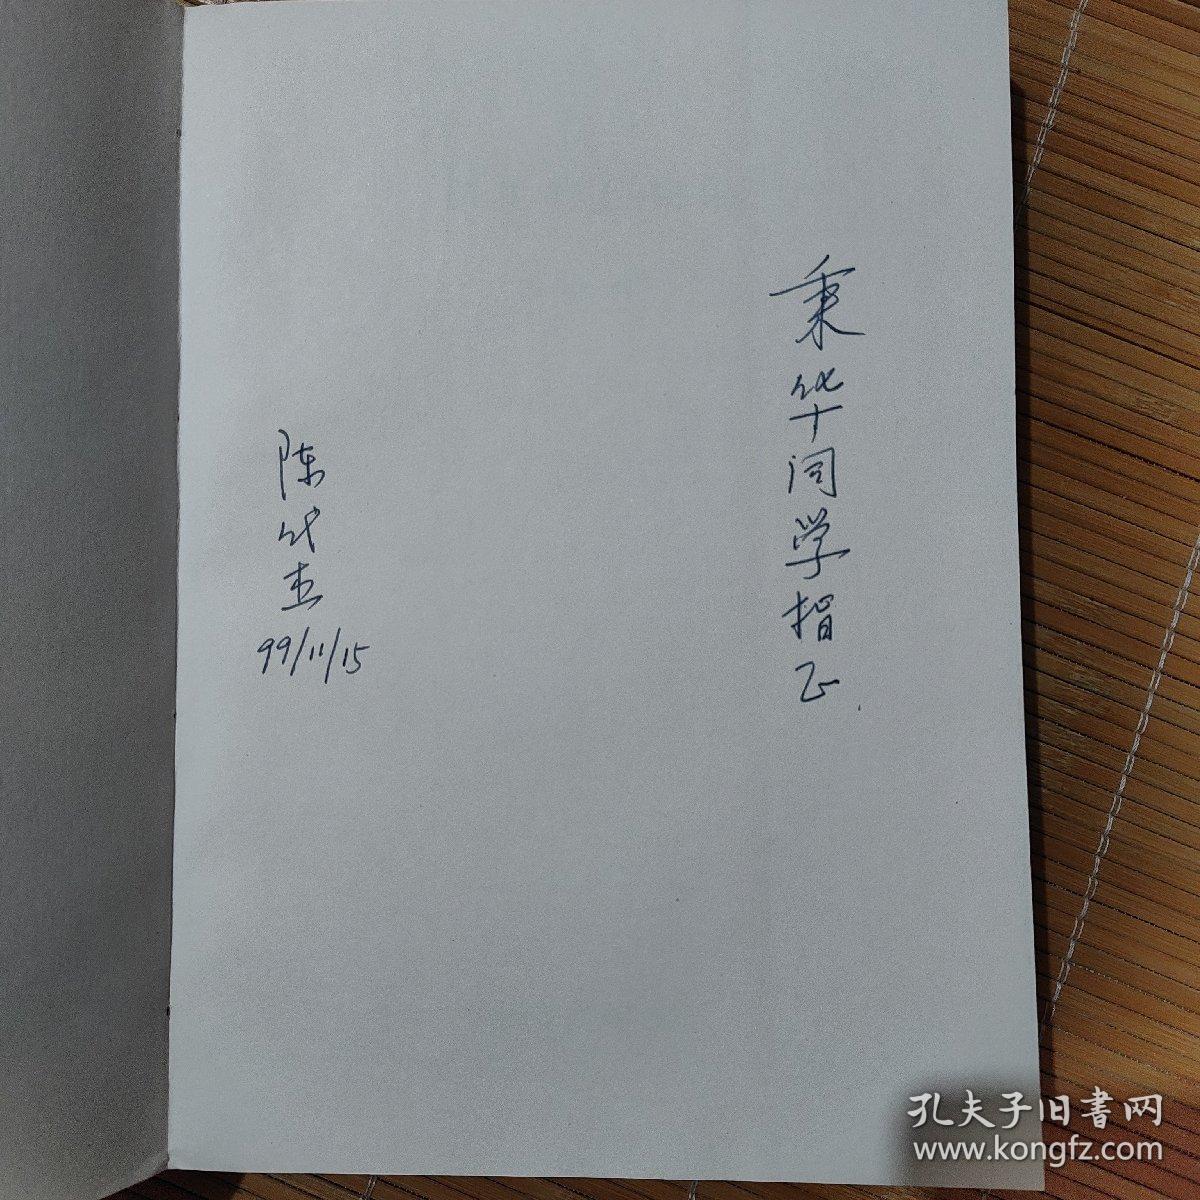 秉华同学指正
陈代杰
99/11/15
孔夫子旧书网
www.kongfz.com